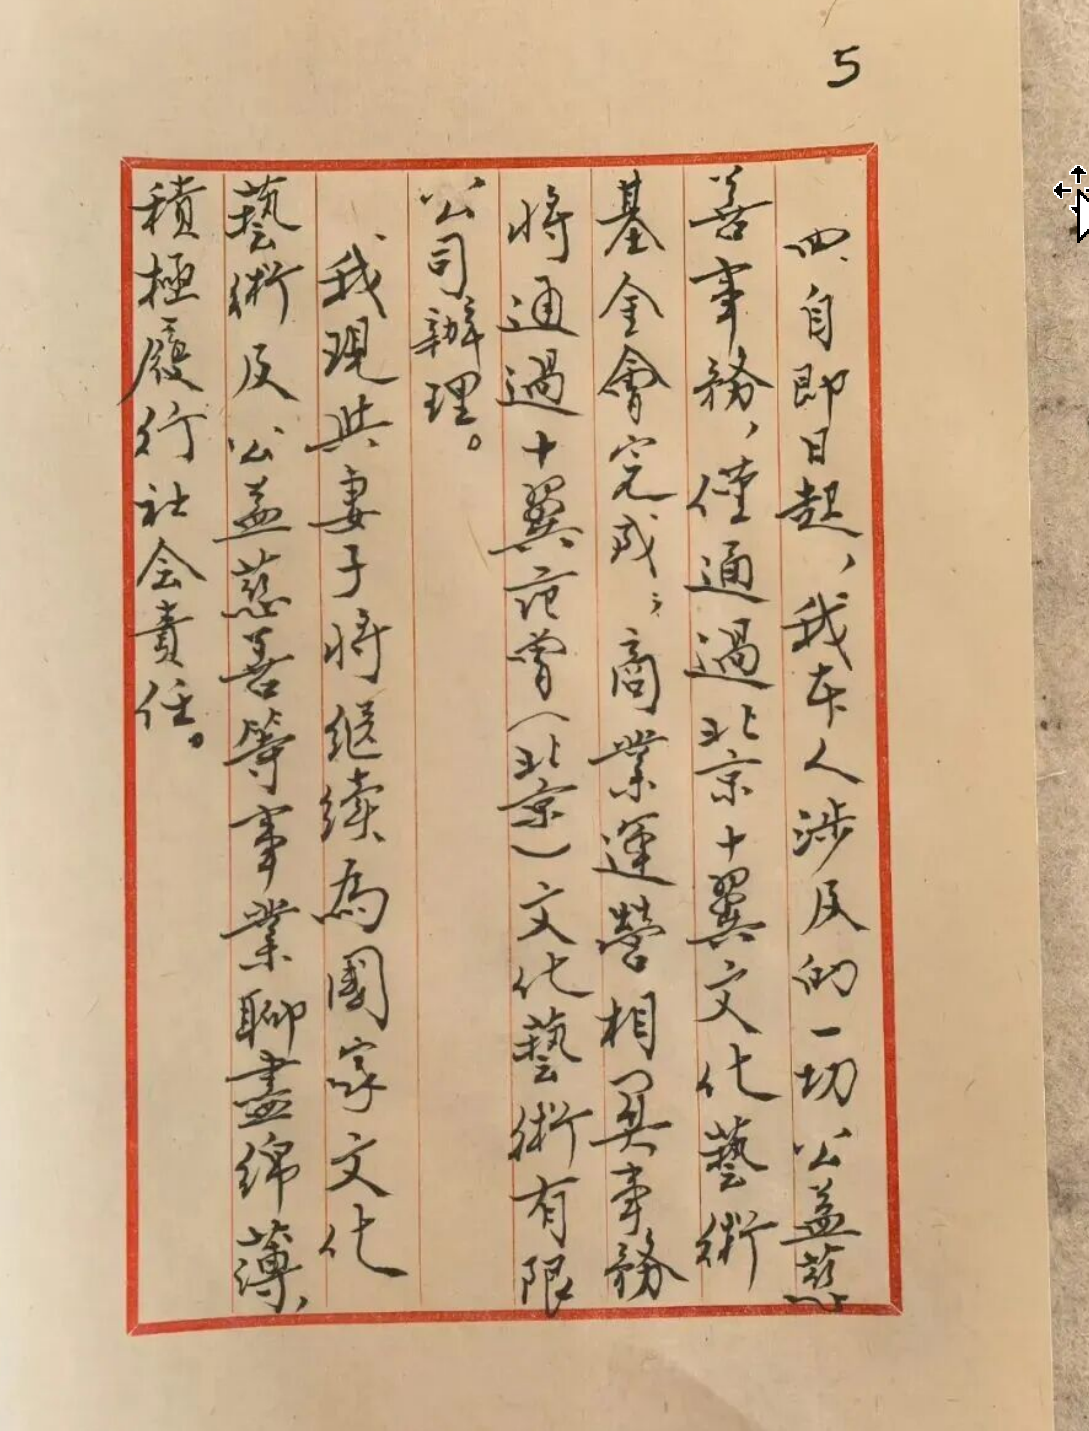 5
四、自即日起，我本人涉及的一切公益慈
善事務，僅通過北京十翼文化藝術
基金會完成；商業運營相関事務
將通過十翼范曾（北京）文化藝術有限
公司辦理。
我現與妻子將继续為國家文化
藝術及公益慈善等事業聊盡綿薄，
積極履行社会責任。